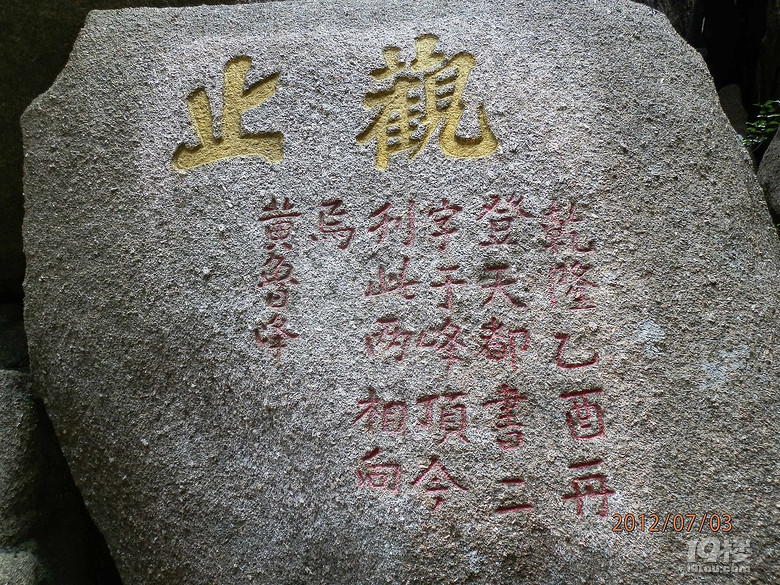 觀止
乾隆乙酉再
登天都書二
字于峰頂今
刊此兩相向
焉
黄魯峰
2012/07/03
19楼
19lou.com